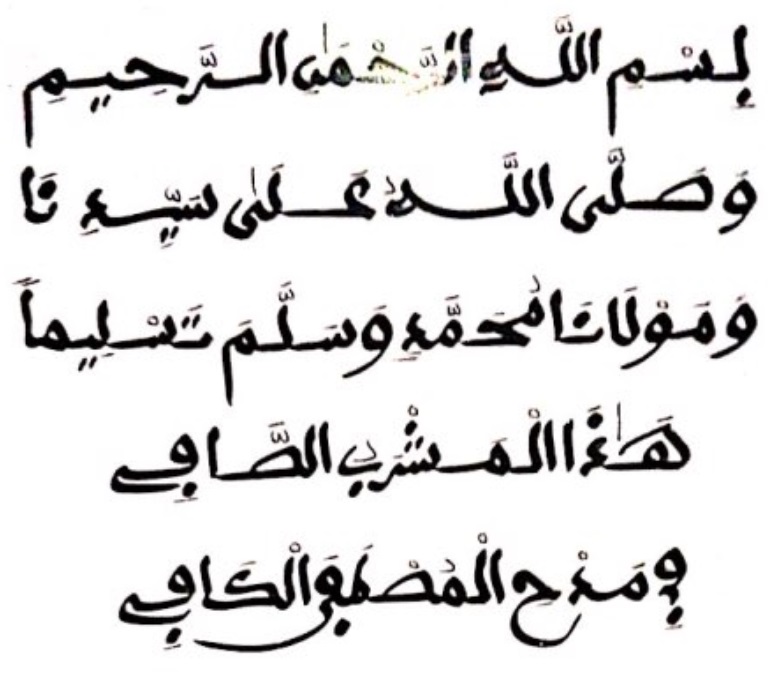 بِسْمِ اللَّهِ الرَّحْمَٰنِ الرَّحِيمِ
وَصَلَّى اللَّهُ عَلَىٰ سَيِّدِنَا
وَمَوْلَانَا مُحَمَّدٍ وَسَلَّمَ تَسْلِيماً
هَٰذَا الْمَشْرَبُ الصَّافِي
فِي مَدْحِ الْمُصْطَفَى الْكَافِي